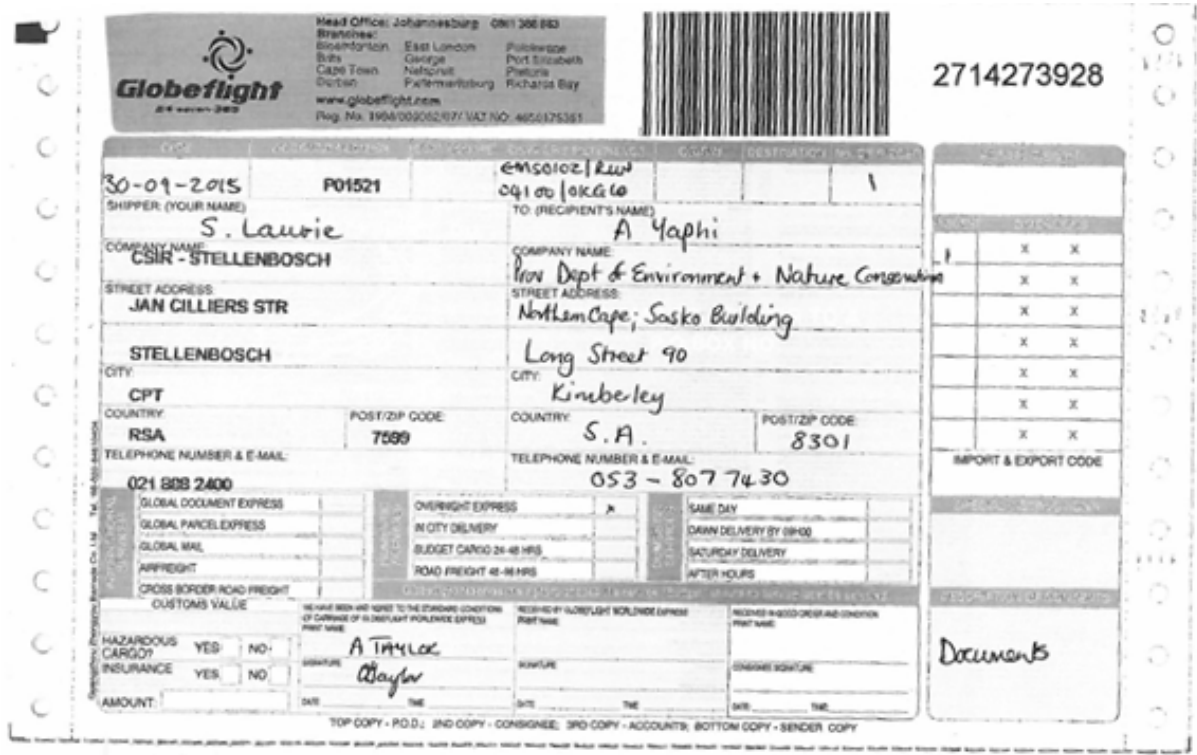 Head Office: Johannesburg 0861 388 883
Branches:
Bloemfontein East London Polokwane
Brits George Port Elizabeth
Cape Town Nelspruit Pretoria
Durban Pietermaritzburg Richards Bay
www.globeflight.com
Globeflight
24 seven-365
2714273928
30-09-2015
P01521
1
SHIPPER: (YOUR NAME)
S. Laurie
COMPANY NAME:
CSIR - STELLENBOSCH
STREET ADDRESS:
JAN CILLIERS STR
STELLENBOSCH
CITY:
CPT
COUNTRY:
RSA
POST/ZIP CODE:
7599
TELEPHONE NUMBER & E-MAIL:
021 808 2400
TO: (RECIPIENT'S NAME)
A Yaphi
COMPANY NAME:
Prov Dept of Environment + Nature Conservation
STREET ADDRESS:
Northern Cape; Sasko Building
Long Street 90
CITY:
Kimberley
COUNTRY:
S.A.
POST/ZIP CODE:
8301
TELEPHONE NUMBER & E-MAIL:
053 - 807 7430
X X
X X
X X
X X
X X
X X
X X
IMPORT & EXPORT CODE
GLOBAL DOCUMENT EXPRESS
GLOBAL PARCEL EXPRESS
GLOBAL MAIL
AIRFREIGHT
CROSS BORDER ROAD FREIGHT
OVERNIGHT EXPRESS x
IN CITY DELIVERY
BUDGET CARGO 24-48 HRS
ROAD FREIGHT 48-96 HRS
SAME DAY
DAWN DELIVERY BY 09H00
SATURDAY DELIVERY
AFTER HOURS
CUSTOMS VALUE
HAZARDOUS CARGO? YES NO
INSURANCE YES NO
AMOUNT:
WE HAVE SEEN AND AGREE TO THE STANDARD CONDITIONS
OF CARRIAGE OF GLOBEFLIGHT WORLDWIDE EXPRESS
PRINT NAME:
A TAYLOR
SIGNATURE
ATaylor
DATE TIME
RECEIVED BY GLOBEFLIGHT WORLDWIDE EXPRESS
PRINT NAME:
SIGNATURE
DATE TIME
RECEIVED IN GOOD ORDER AND CONDITION
PRINT NAME:
CONSIGNEE SIGNATURE
DATE TIME
Documents
TOP COPY - P.O.D.; 2ND COPY - CONSIGNEE; 3RD COPY - ACCOUNTS; BOTTOM COPY - SENDER COPY